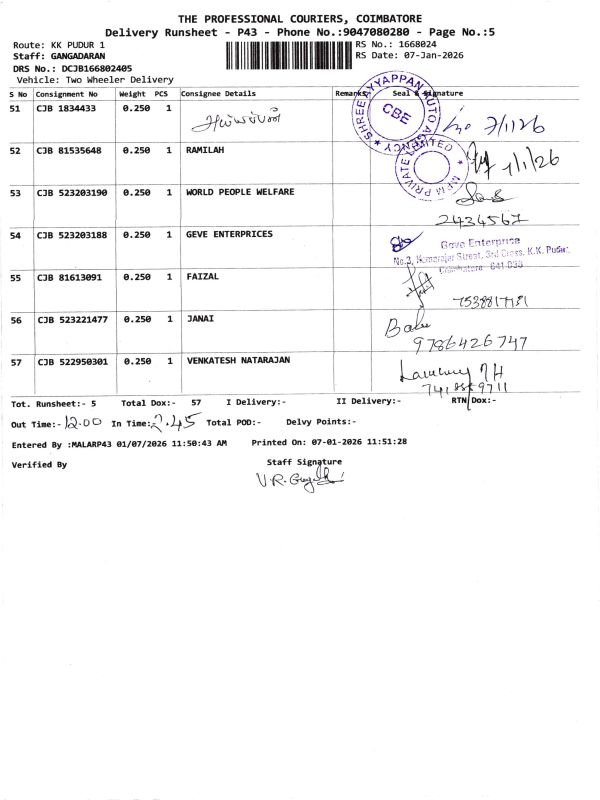 THE PROFESSIONAL COURIERS, COIMBATORE
Delivery Runsheet - P43 - Phone No.:9047080280 - Page No.:5
Route: KK PUDUR 1 RS No.: 1668024
Staff: GANGADARAN RS Date: 07-Jan-2026
DRS No.: DCJB166802405
Vehicle: Two Wheeler Delivery
S No Consignment No Weight PCS Consignee Details Remarks Seal & Signature
51 CJB 1834433 0.250 1 அய்யப்பன் 7/1/26
SHREE AYYAPPAN AUTO AGENCY
CBE
52 CJB 81535648 0.250 1 RAMILAH 7/1/26
PRIVATE LIMITED
53 CJB 523203190 0.250 1 WORLD PEOPLE WELFARE
2434567
54 CJB 523203188 0.250 1 GEVE ENTERPRICES Geve Enterprise
No.3, Kamarajar Street, 3rd Cross, K.K. Pudur,
Coimbatore - 641 038
55 CJB 81613091 0.250 1 FAIZAL
56 CJB 523221477 0.250 1 JANAI Babu
9786426747
57 CJB 522950301 0.250 1 VENKATESH NATARAJAN
Tot. Runsheet:- 5 Total Dox:- 57 I Delivery:- II Delivery:- RTN Dox:-
Out Time:- 12.00 In Time:- 2.45 Total POD:- Delvy Points:-
Entered By :MALARP43 01/07/2026 11:50:43 AM Printed On: 07-01-2026 11:51:28
Verified By Staff Signature